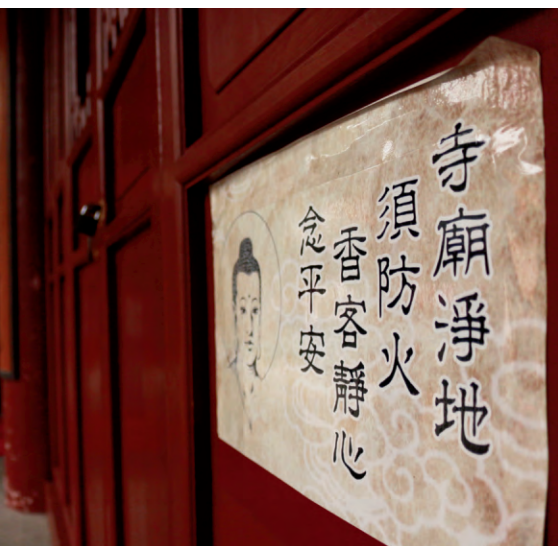 寺廟淨地
須防火
香客靜心
念平安